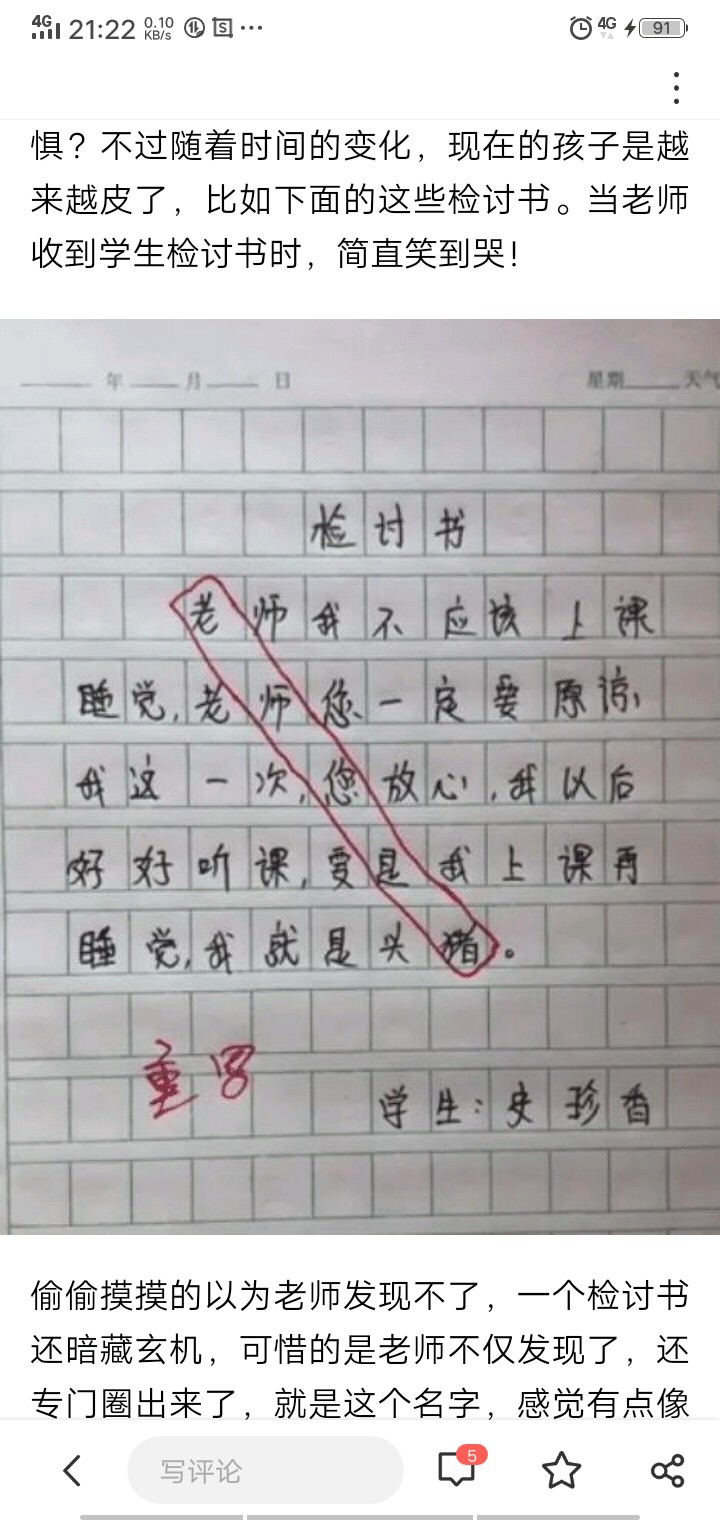 4G 21:22 0.10 KB/s ··· 4G 91
惧？不过随着时间的变化，现在的孩子是越
来越皮了，比如下面的这些检讨书。当老师
收到学生检讨书时，简直笑到哭！
年 月 日 星期 天气
检讨书
老师我不应该上课
睡觉,老师您一定要原谅,
我这一次,您放心,我以后
好好听课,要是我上课再
睡觉,我就是头猪。
重写
学生:史珍香
偷偷摸摸的以为老师发现不了，一个检讨书
还暗藏玄机，可惜的是老师不仅发现了，还
专门圈出来了，就是这个名字，感觉有点像
写评论 5